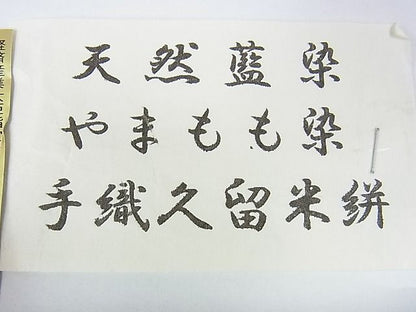 天然藍染
やまもも染
手織久留米絣